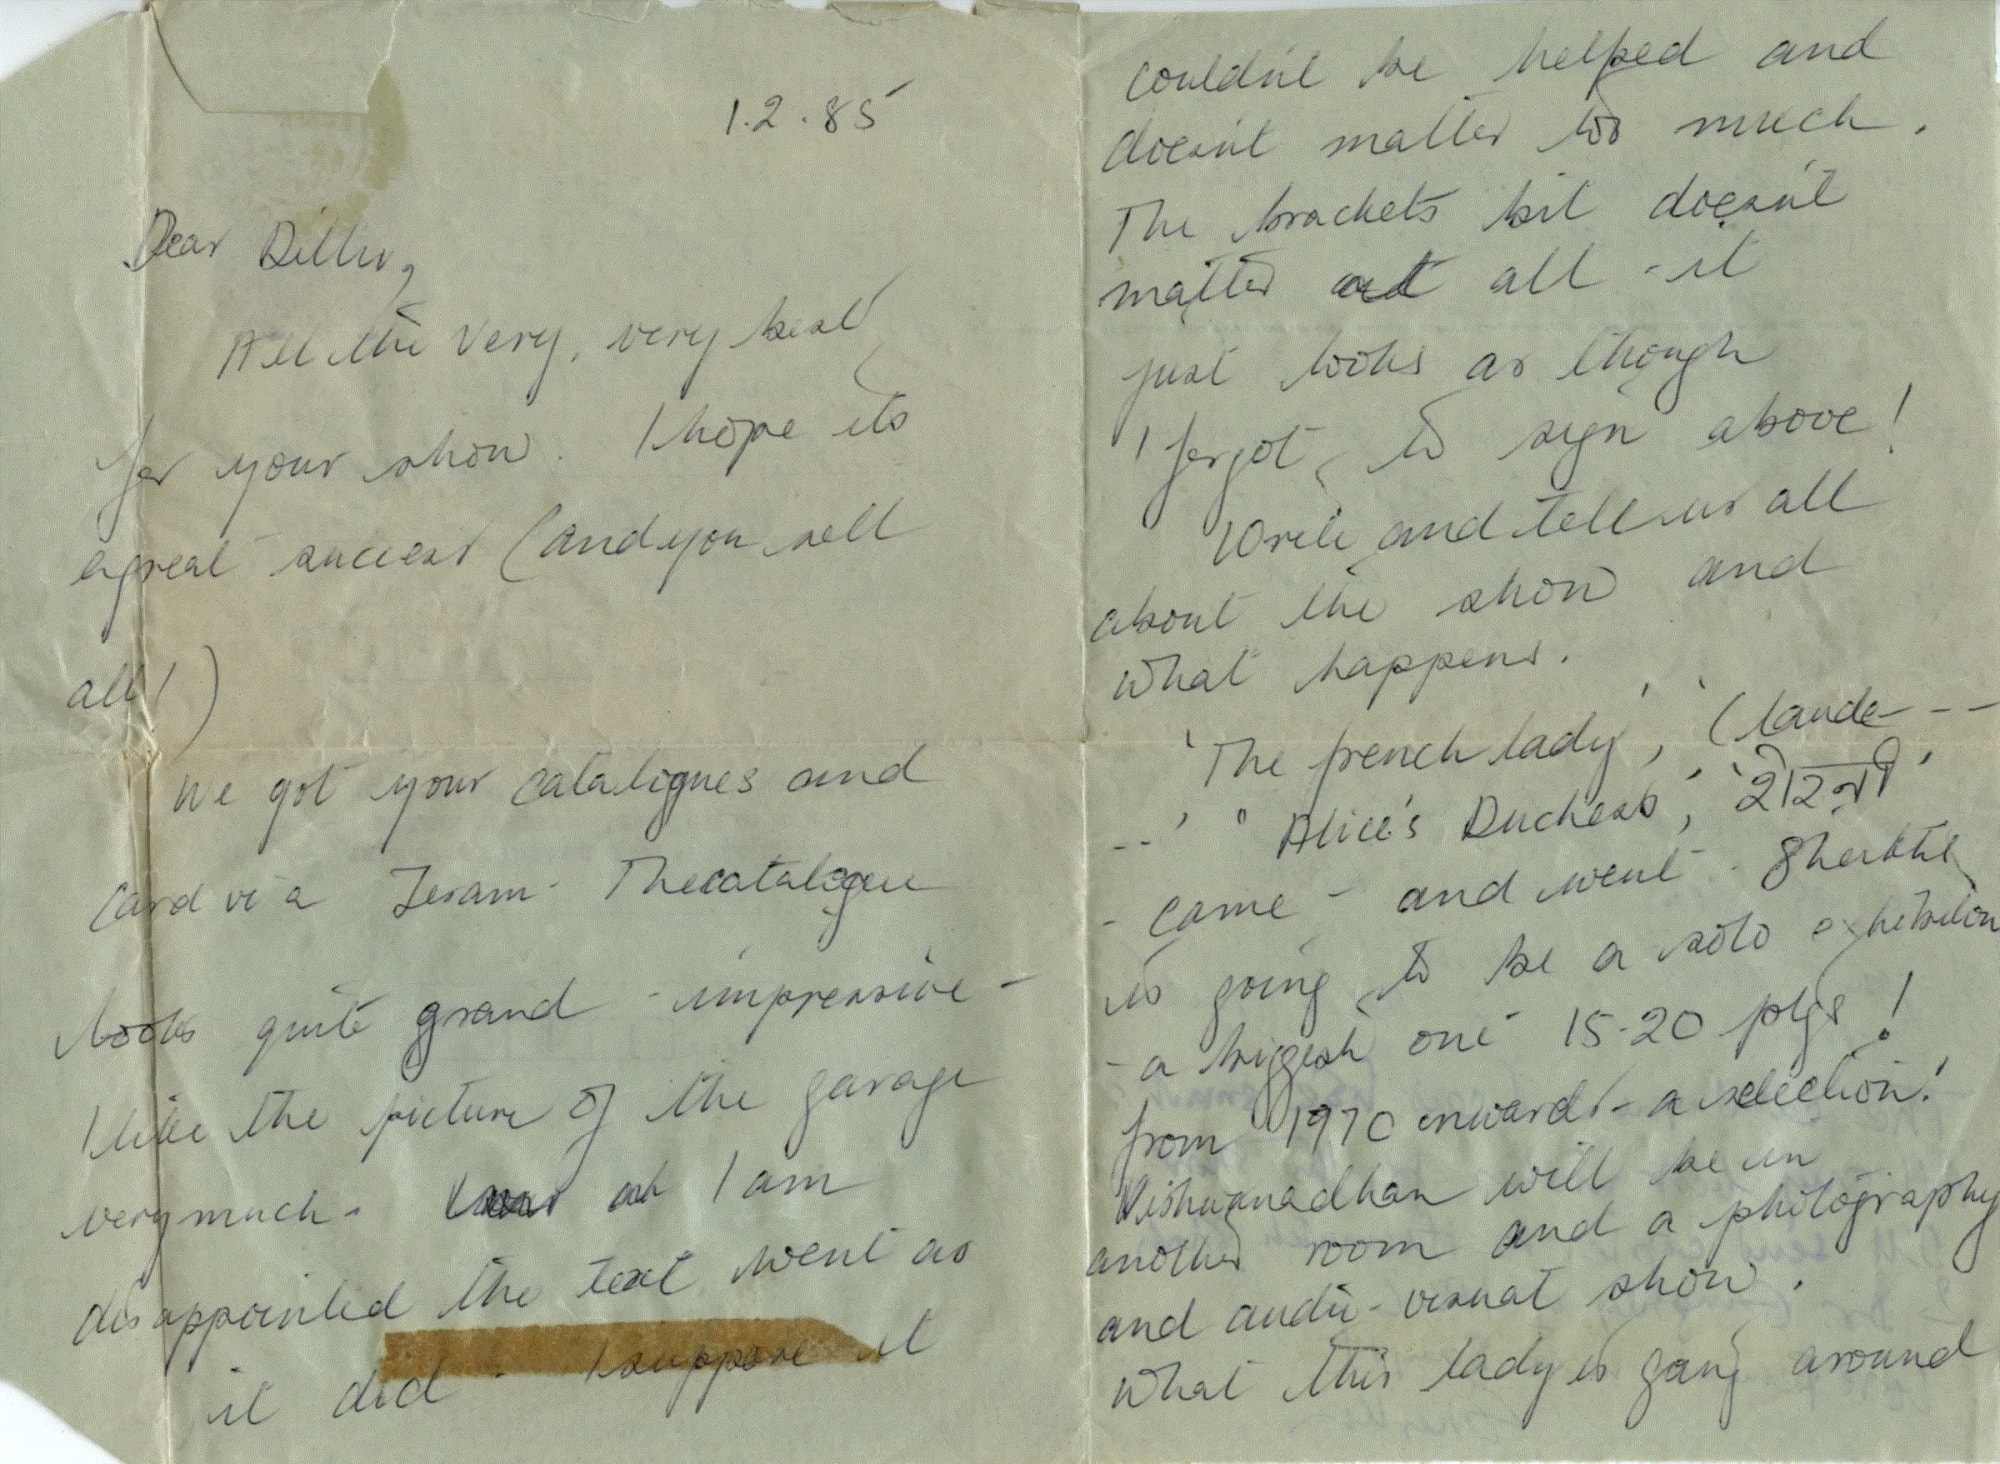 1.2.85
Dear
All the very, very best
for your show. I hope its
a great success (and you sell
all!)
We got your catalogues and
card via Jeram. The catalogue
looks quite grand - impressive -
I like the picture of the garage
very much. I am
disappointed the text went as
it did - I suppose it
couldn't be helped and
doesn't matter too much.
The brackets bit doesn't
matter at all - it
just looks as though
I forgot to sign above!
Write and tell us all
about the show and
what happens.
'The french lady', '(laude - - -
- - ' 'Alice's Duchess',
- came - and went.
is going to be a solo exhibition
- a biggish one 15-20 ptgs!
from 1970 onwards - a selection!
Vishwanadhan will be in
another room and a photography
and audio-visual show.
What this lady is going around